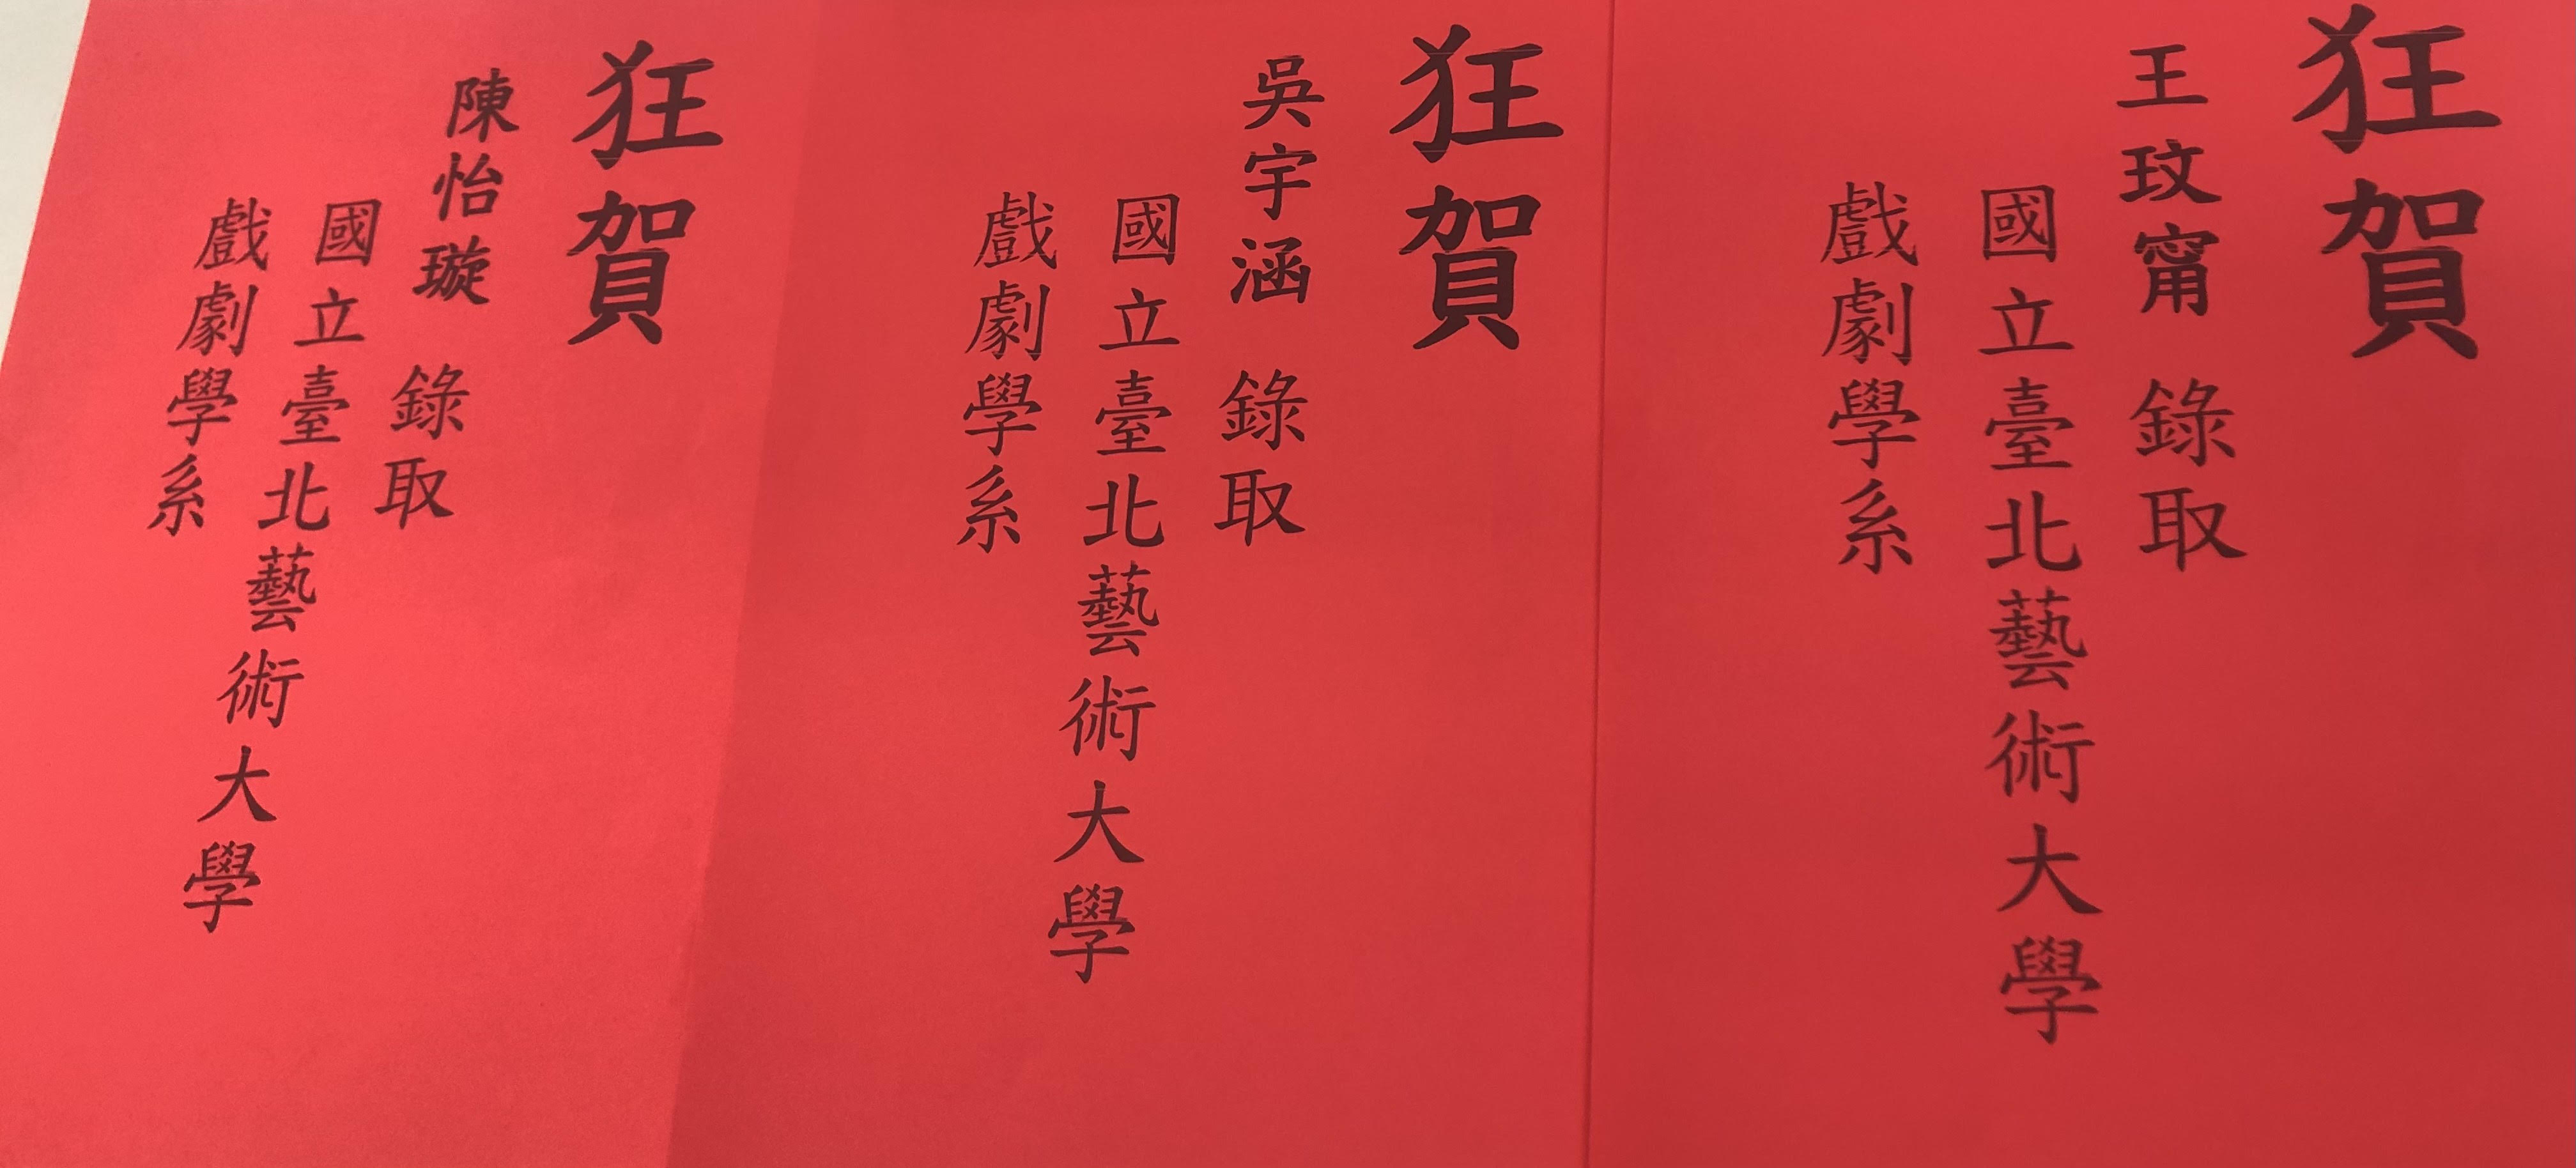 狂賀
王玟甯 錄取
國立臺北藝術大學
戲劇學系
狂賀
吳宇涵 錄取
國立臺北藝術大學
戲劇學系
狂賀
陳怡璇 錄取
國立臺北藝術大學
戲劇學系